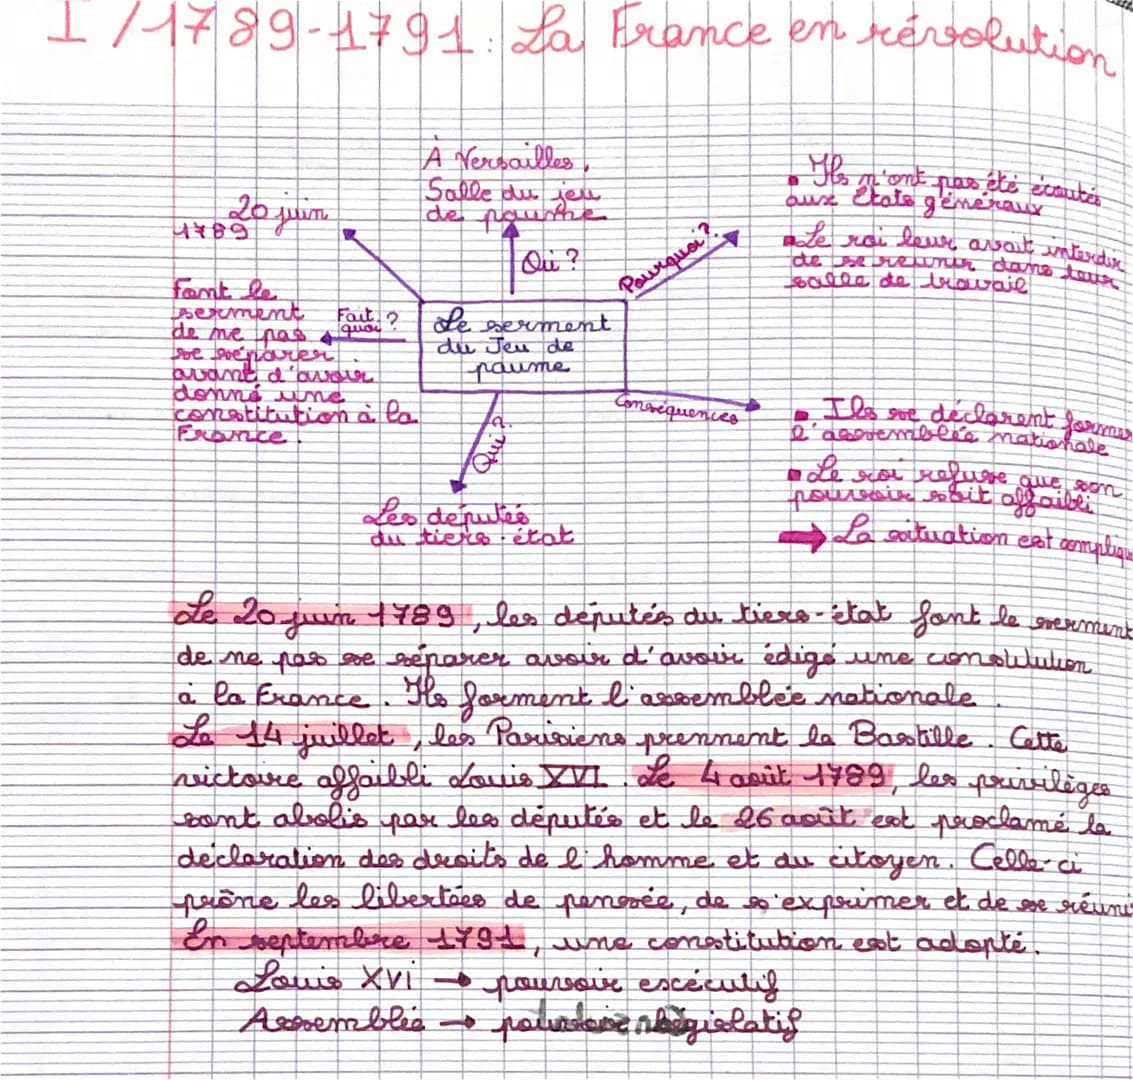 I / 1789-1791 : La France en révolution
À Versailles,
Salle du jeu
de paume
Où ?
20 juin
1789
Pourquoi ?
▪ Ils n'ont pas été écoutés
aux États généraux
▪ Le roi leur avait interdir
de se réunir dans leur
salle de travail
Font le
serment
de ne pas
se séparer
avant d'avoir
donné une
constitution à la
France.
Fait
quoi ?
Le serment
du Jeu de
paume
Qui ?
Les députés
du tiers-état
Conséquences
▪ Ils se déclarent former
l'assemblée nationale
▪ Le roi refuse que son
pouvoir soit affaibli
➡ La situation est compliqu
Le 20 juin 1789, les députés du tiers-état font le serment
de ne pas se séparer avoir d'avoir édigé une constitution
à la France. Ils forment l'assemblée nationale.
Le 14 juillet, les Parisiens prennent la Bastille. Cette
victoire affaibli Louis XVI. Le 4 août 1789, les privilèges
sont abolis par les députés et le 26 août est proclamé la
déclaration des droits de l'homme et du citoyen. Celle-ci
prône les libertées de pensée, de s'exprimer et de se réuni
En septembre 1791, une constitution est adopté.
Louis XVI → pouvoir escécutif
Assemblée → législatif